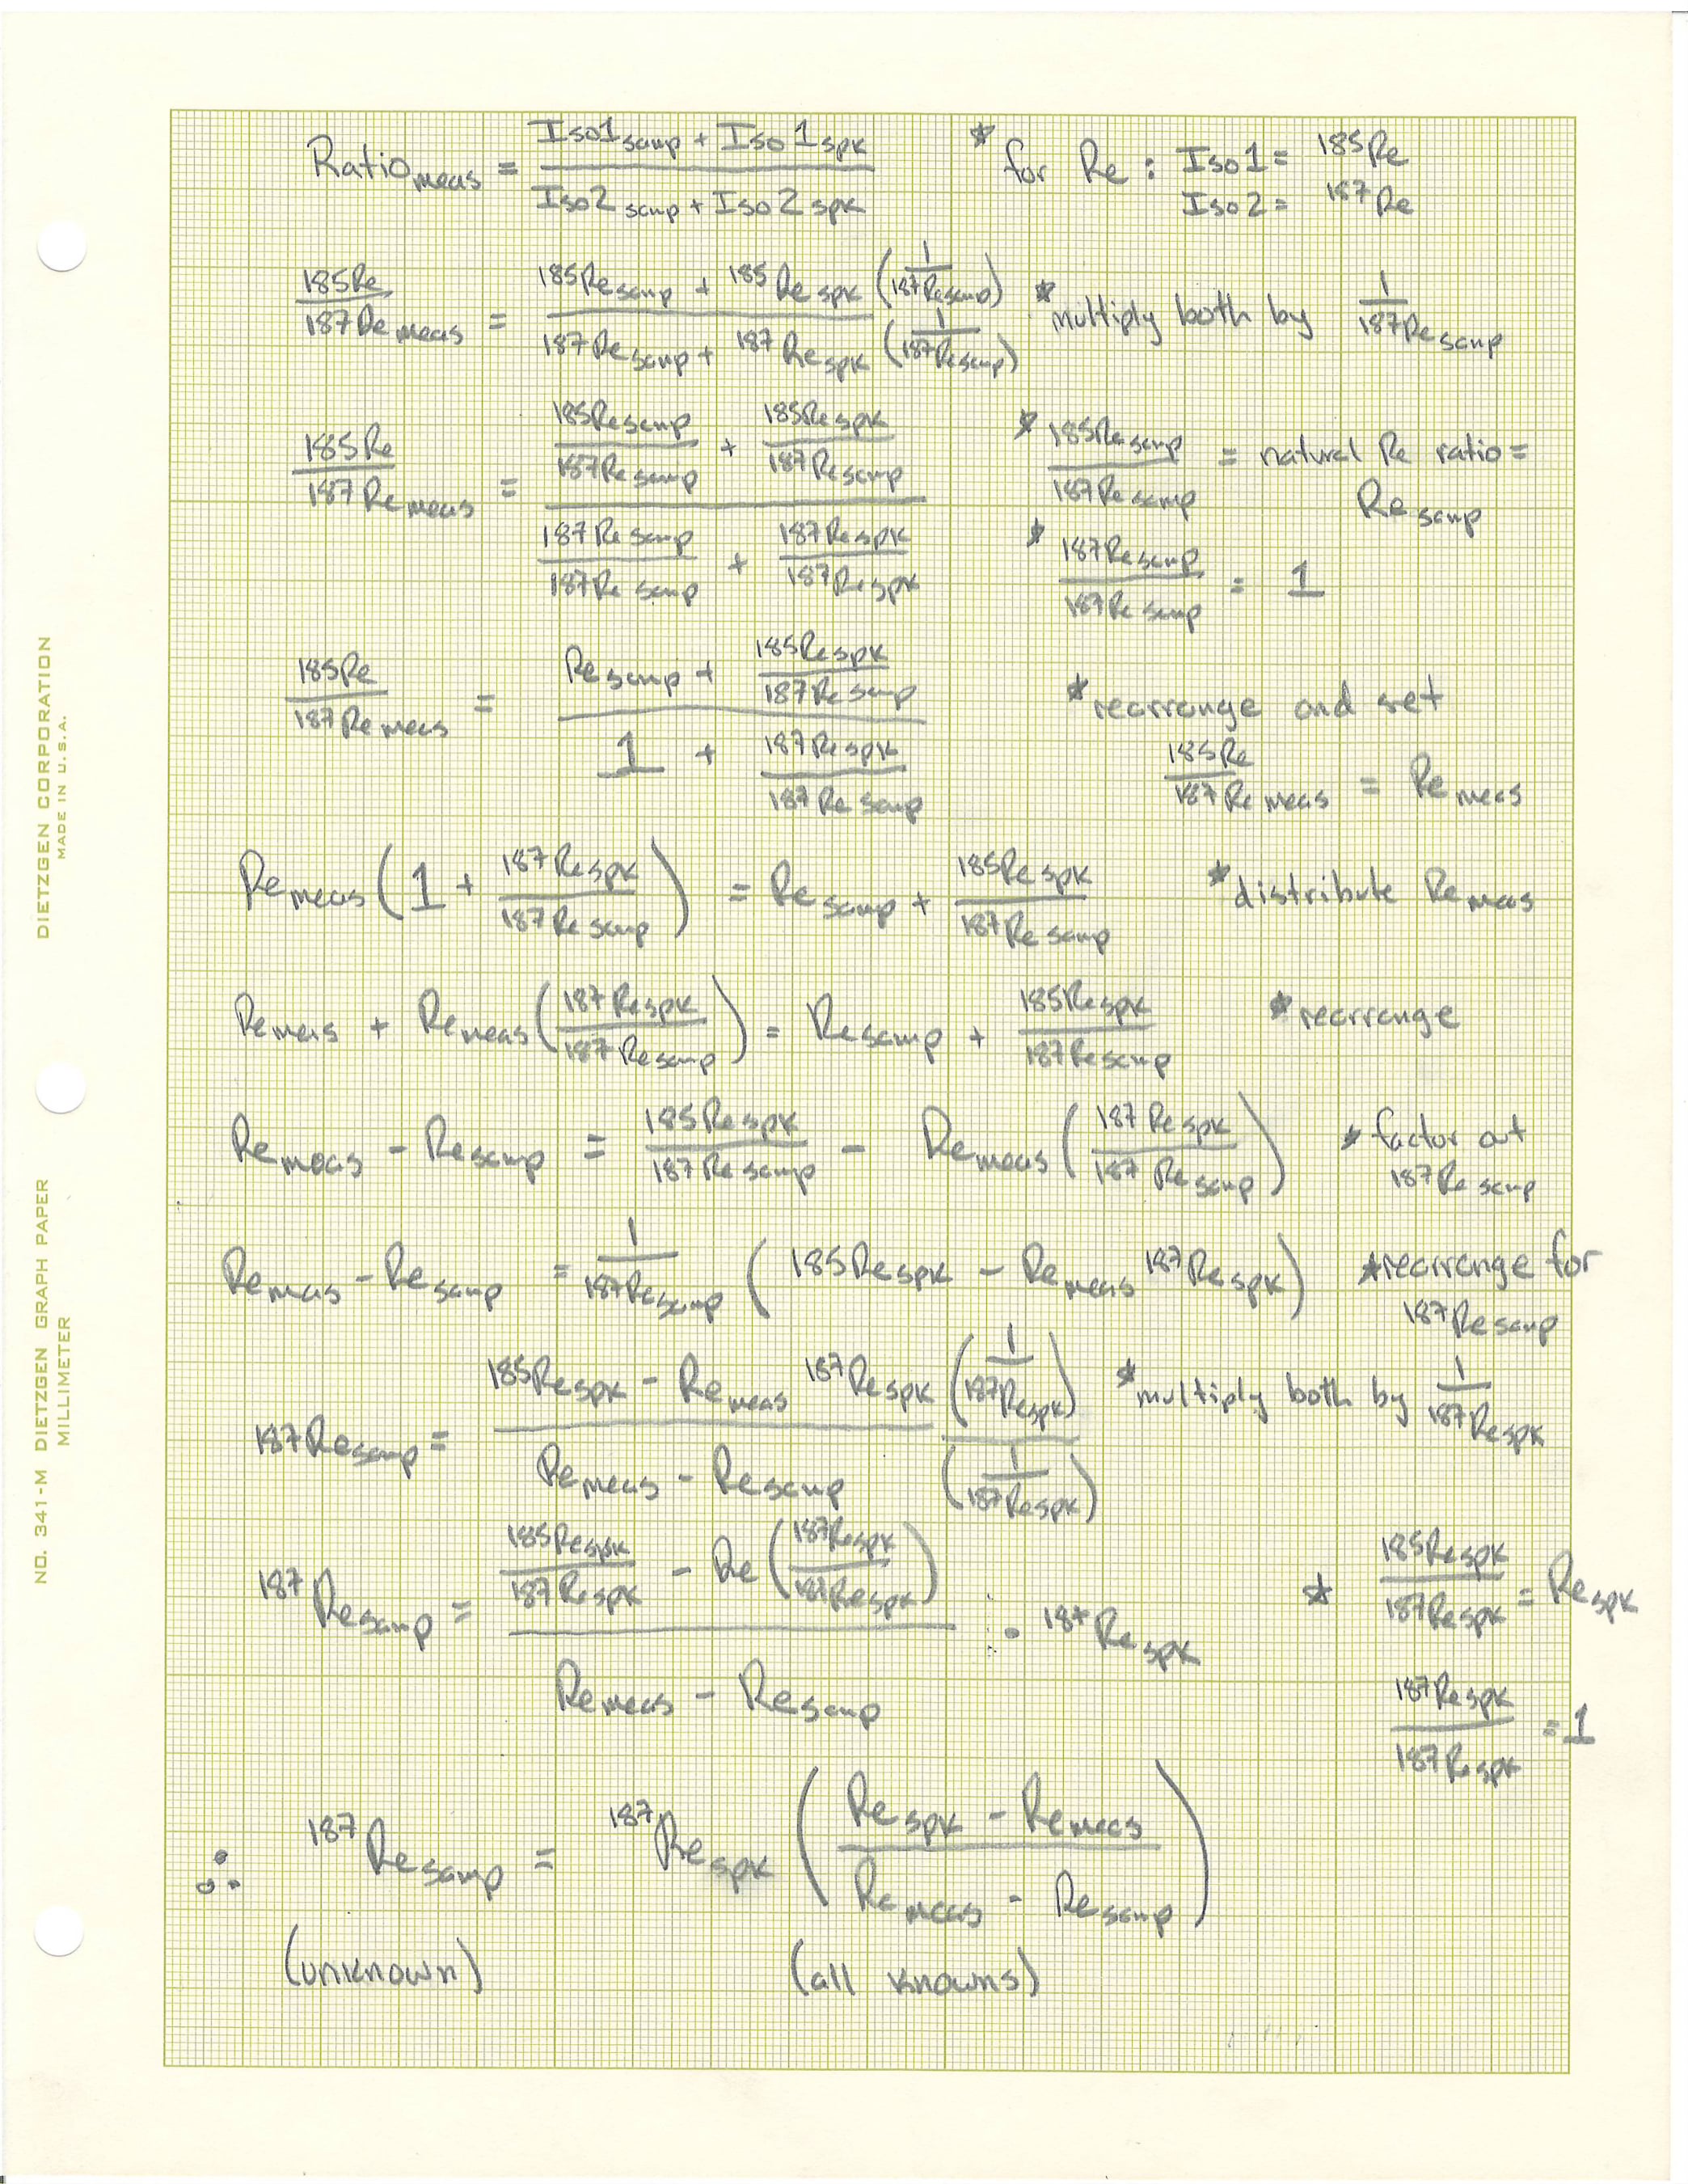 Ratio_meas = (Iso1_samp + Iso1_spk) / (Iso2_samp + Iso2_spk) * for Re: Iso1 = 185Re
Iso2 = 187Re
185Re / 187Re_meas = (185Re_samp + 185Re_spk (1/187Re_samp)) / (187Re_samp + 187Re_spk (1/187Re_samp)) * multiply both by 1/187Re_samp
185Re / 187Re_meas = (185Re_samp/187Re_samp + 185Re_spk/187Re_samp) / (187Re_samp/187Re_samp + 187Re_spk/187Re_spk) * 185Re_samp/187Re_samp = natural Re ratio = Re_samp
* 187Re_samp/187Re_samp = 1
185Re / 187Re_meas = (Re_samp + 185Re_spk/187Re_samp) / (1 + 187Re_spk/187Re_samp) * rearrange and set
185Re/187Re_meas = Re_meas
Re_meas (1 + 187Re_spk/187Re_samp) = Re_samp + 185Re_spk/187Re_samp * distribute Re_meas
Re_meas + Re_meas (187Re_spk/187Re_samp) = Re_samp + 185Re_spk/187Re_samp * rearrange
Re_meas - Re_samp = 185Re_spk/187Re_samp - Re_meas (187Re_spk/187Re_samp) * factor out
187Re_samp
Re_meas - Re_samp = 1/187Re_samp (185Re_spk - Re_meas 187Re_spk) * rearrange for
187Re_samp
187Re_samp = (185Re_spk - Re_meas 187Re_spk) / (Re_meas - Re_samp) (1/187Re_spk) / (1/187Re_spk) * multiply both by 1/187Re_spk
187Re_samp = (185Re_spk/187Re_spk - Re (187Re_spk/187Re_spk)) / (Re_meas - Re_samp) · 187Re_spk * 185Re_spk/187Re_spk = Re_spk
187Re_spk/187Re_spk = 1
∴ 187Re_samp = 187Re_spk ((Re_spk - Re_meas) / (Re_meas - Re_samp))
(unknown) (all knowns)
DIETZGEN CORPORATION
MADE IN U.S.A.
NO. 341-M DIETZGEN GRAPH PAPER
MILLIMETER